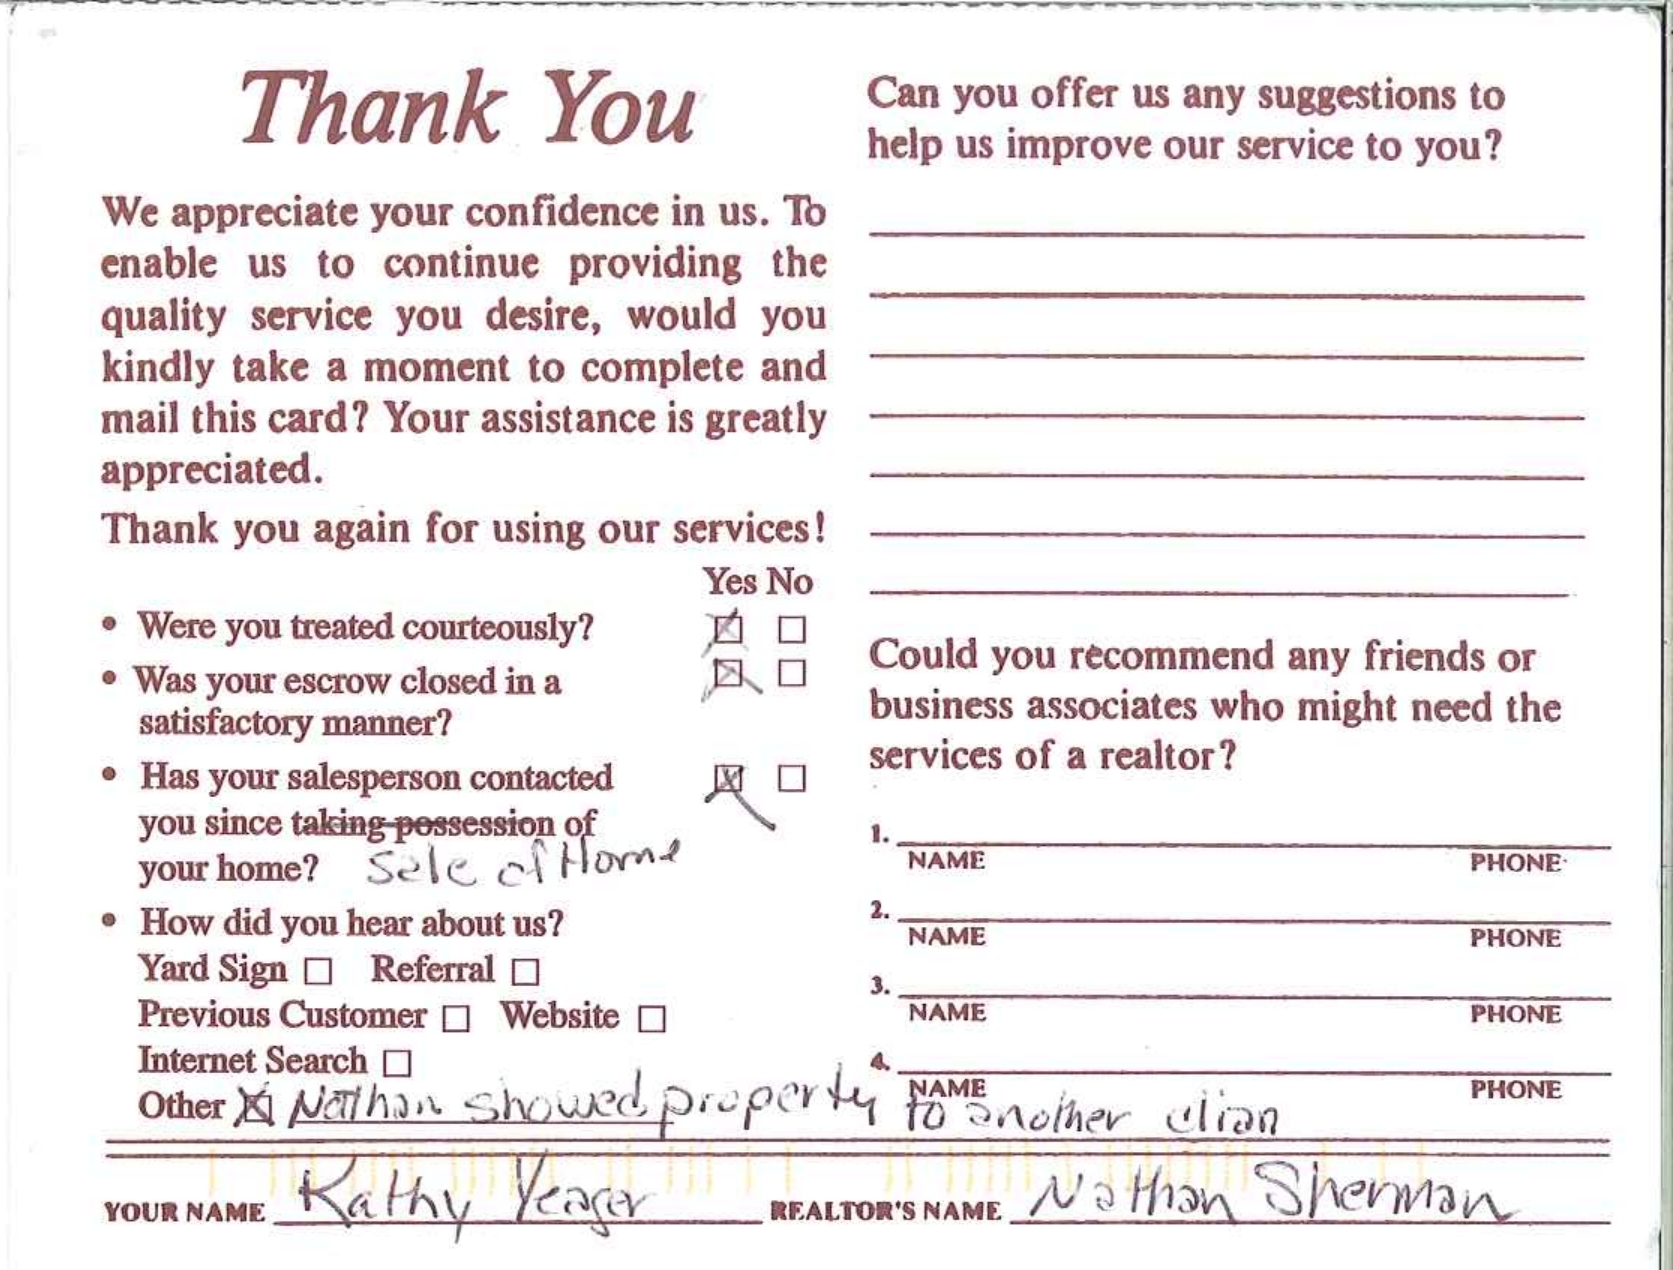 Thank You
We appreciate your confidence in us. To
enable us to continue providing the
quality service you desire, would you
kindly take a moment to complete and
mail this card? Your assistance is greatly
appreciated.
Thank you again for using our services!
Yes No
• Were you treated courteously?
• Was your escrow closed in a
satisfactory manner?
• Has your salesperson contacted
you since taking possession of
your home? Sale of Home
• How did you hear about us?
Yard Sign ☐ Referral ☐
Previous Customer ☐ Website ☐
Internet Search ☐
Other ☒ Nathan showed property to another clian
Can you offer us any suggestions to
help us improve our service to you?
Could you recommend any friends or
business associates who might need the
services of a realtor?
1.
NAME PHONE
2.
NAME PHONE
3.
NAME PHONE
4.
NAME PHONE
YOUR NAME Kathy Yeager REALTOR'S NAME Nathan Sherman